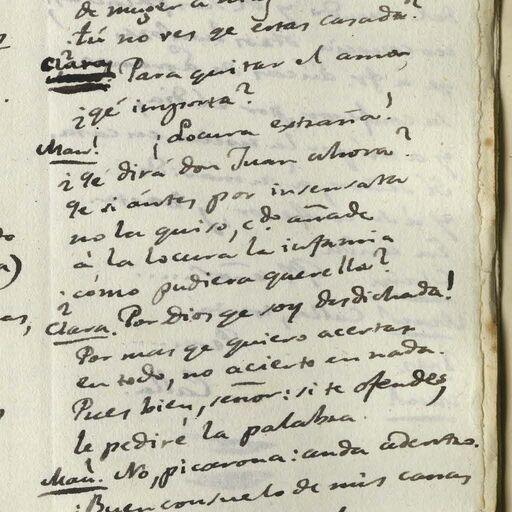 de muger a
tú no ves qe estas casada?
Clara. Para quitar el amor,
¿qé importa?
Man! ¡Locura extraña!
¿qé dirá don Juan ahora?
qe si ántes por insensata
no la quiso, cdo añade
á la locura la infamia
¿cómo pudiera querella?
Clara. Por Dios qe soy desdichada!
Por mas qe quiero acertar
en todo, no acierto en nada.
Pues bien, señor: si te ofendes,
le pediré la palabra.
Man! No, picarona: anda adentro.
¡Buen consuelo de mis canas